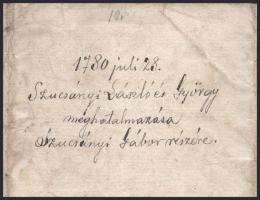 1780 juli 28.
Szucsányi László és György
meghatalmazása
Szucsányi Gábor részére.